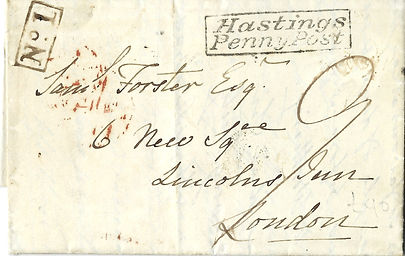 No. 1
Hastings
Penny Post
Saml. Forster Esqr.
6 New Sqre
Lincolns Inn
London
9
£90